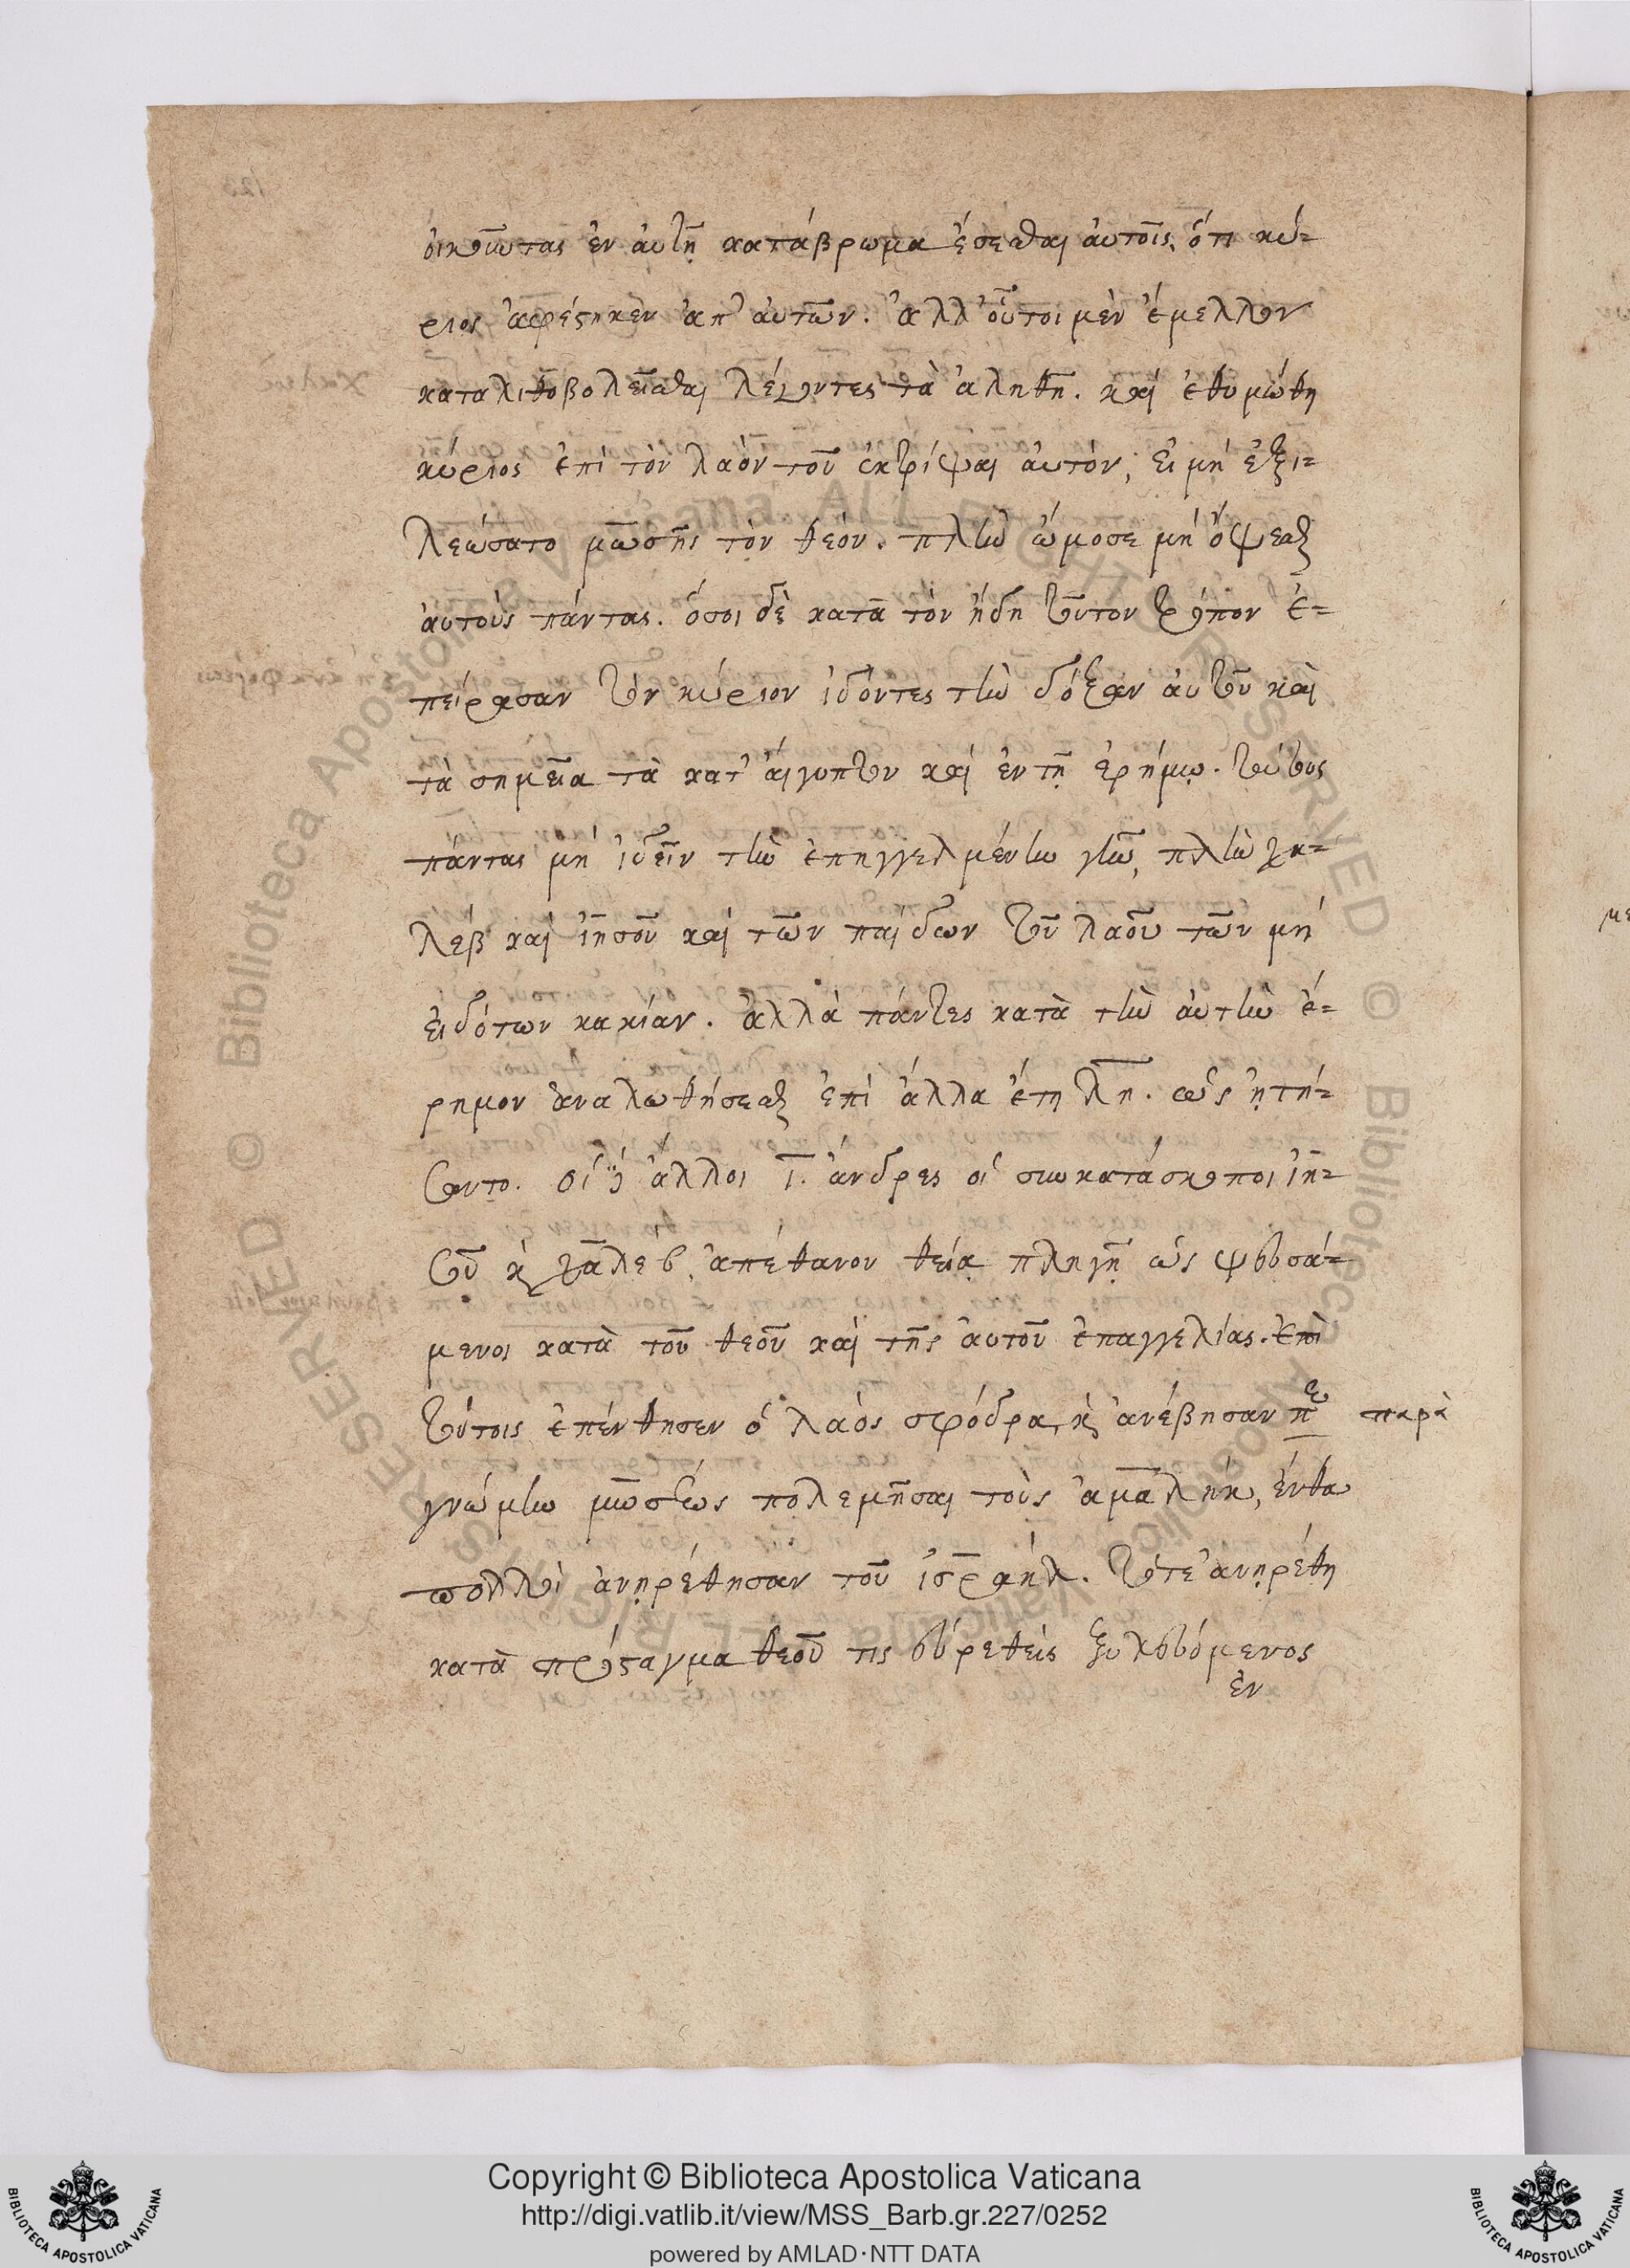 οἰκοῦντας ἐν αὐτῇ κατάβρωμα ἔσεσθαι αὐτοῖς, ὅτι κύ-
ριος ἀφέστηκεν ἀπ' αὐτῶν. ἀλλ' οὗτοι μὲν ἔμελλον
καταλιθοβολεῖσθαι λέγοντες τὰ ἀληθῆ. καὶ ἐθυμώθη
κύριος ἐπὶ τὸν λαὸν τοῦ ἐκτρίψαι αὐτόν, εἰ μὴ ἐξι-
λεώσατο μωσῆς τὸν θεόν. πλὴν ὤμοσε μὴ ὄψεσθαι
αὐτοὺς πάντας. ὅσοι δὲ κατὰ τὸν ἤδη τοῦτον τρόπον ἐ-
πείρασαν τὸν κύριον ἰδόντες τὴν δόξαν αὐτοῦ καὶ
τὰ σημεῖα τὰ κατ' αἴγυπτον καὶ ἐν τῇ ἐρήμῳ. τούτους
πάντας μὴ ἰδεῖν τὴν ἐπηγγελμένην γῆν, πλὴν χα-
λὲβ καὶ ἰησοῦ καὶ τῶν παίδων τοῦ λαοῦ τῶν μὴ
εἰδότων κακίαν. ἀλλὰ πάντες κατὰ τὴν αὐτὴν ἔ-
ρημον ἀναλωθήσεσθαι ἐπὶ ἄλλα ἔτη λη. ὡς ᾐτή-
σαντο. οἱ ἄλλοι ι. ἄνδρες οἱ συνκατάσκοποι ἰη-
σοῦ κ χαλὲβ, ἀπέθανον θείᾳ πληγῇ ὡς ψευσά-
μενοι κατὰ τοῦ θεοῦ καὶ τῆς αὐτοῦ ἐπαγγελίας. ἐπὶ
τούτοις ἐπένθησεν ὁ λαὸς σφόδρα, κ ἀνέβησαν π παρὰ
γνώμην μωσέως πολεμῆσαι τοὺς ἀμαλήκ, ἔνθα
πολλοὶ ἀνῃρέθησαν τοῦ ἰσραήλ. τότε ἀνῃρέθη
κατὰ πρόσταγμα θεοῦ τις εὑρεθεὶς ξυλευόμενος
ἐν
Copyright © Biblioteca Apostolica Vaticana
http://digi.vatlib.it/view/MSS_Barb.gr.227/0252
powered by AMLAD·NTT DATA
BIBLIOTECA APOSTOLICA VATICANA
BIBLIOTECA APOSTOLICA VATICANA